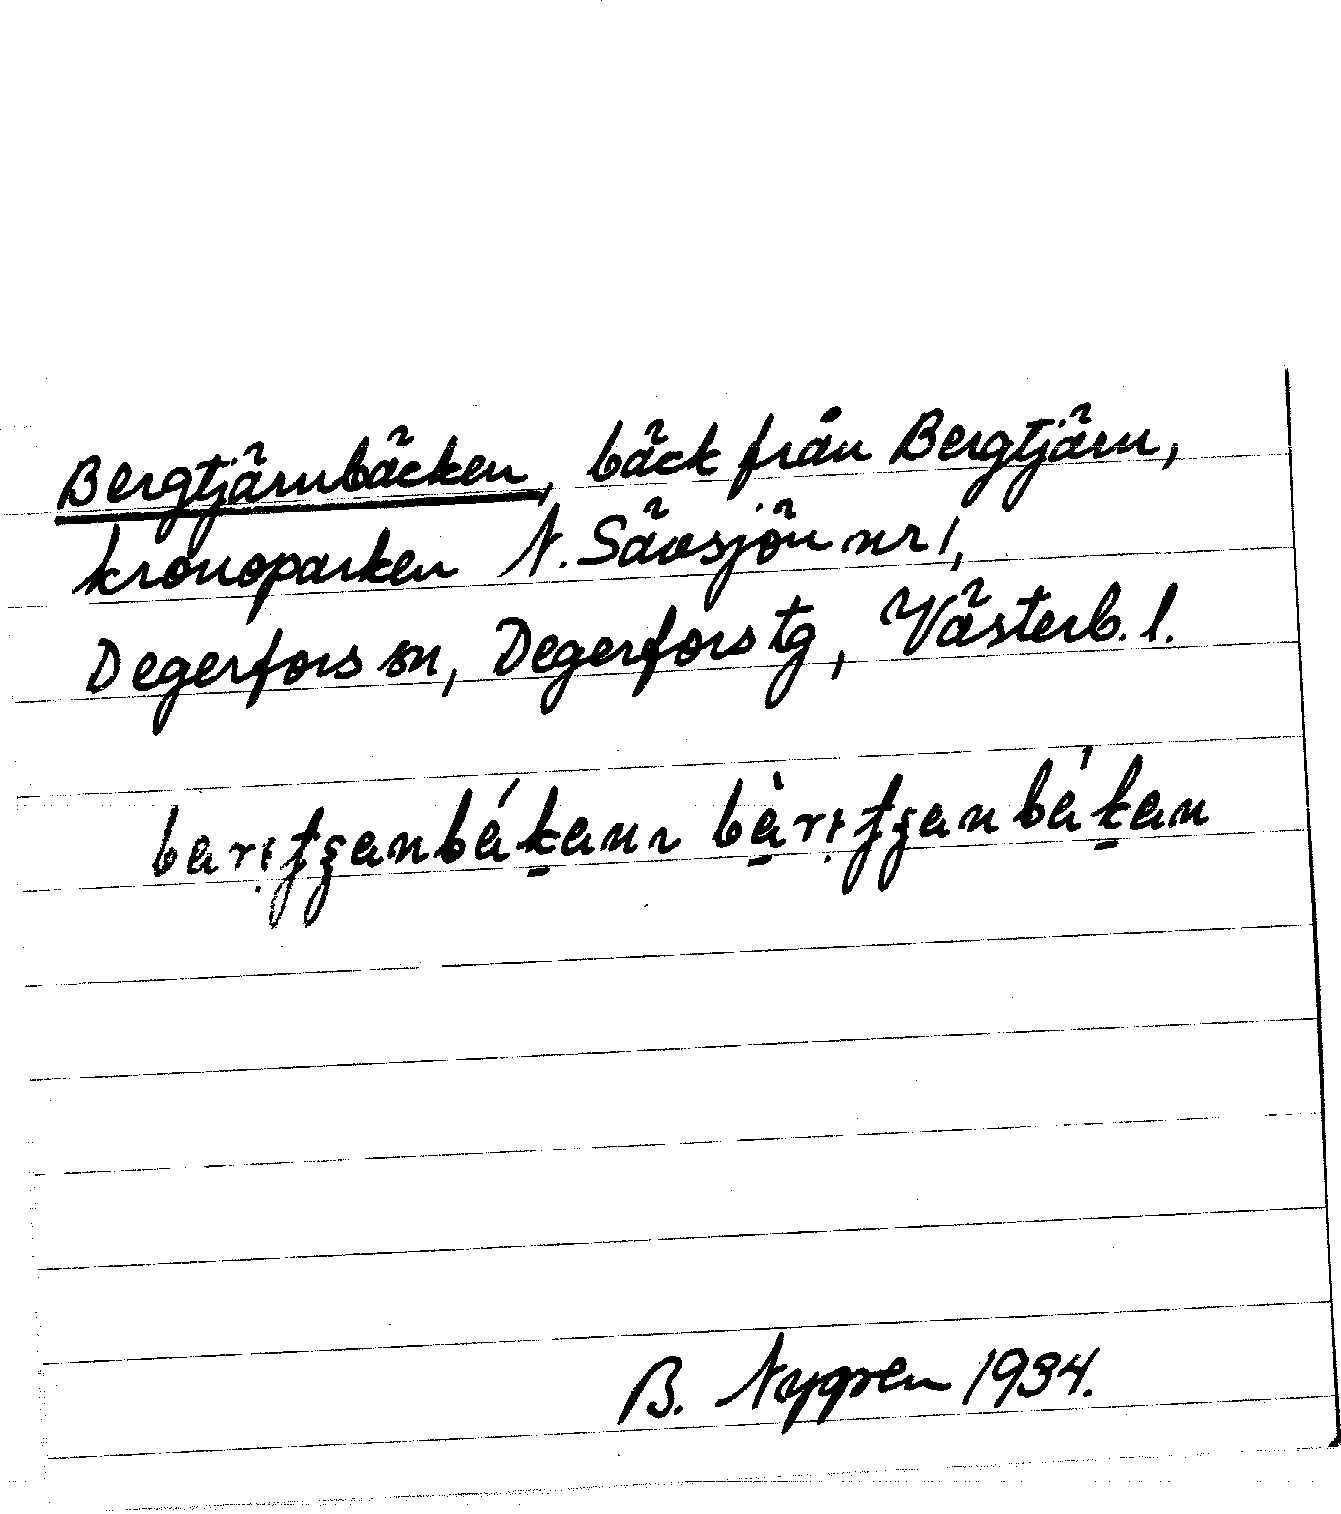 Bergtjärnbäcken, bäck från Bergtjärn,
kronoparken N. Sävsjön nr 1,
Degerfors sn, Degerfors tg, Västerb. l.
B. Nygren 1934.